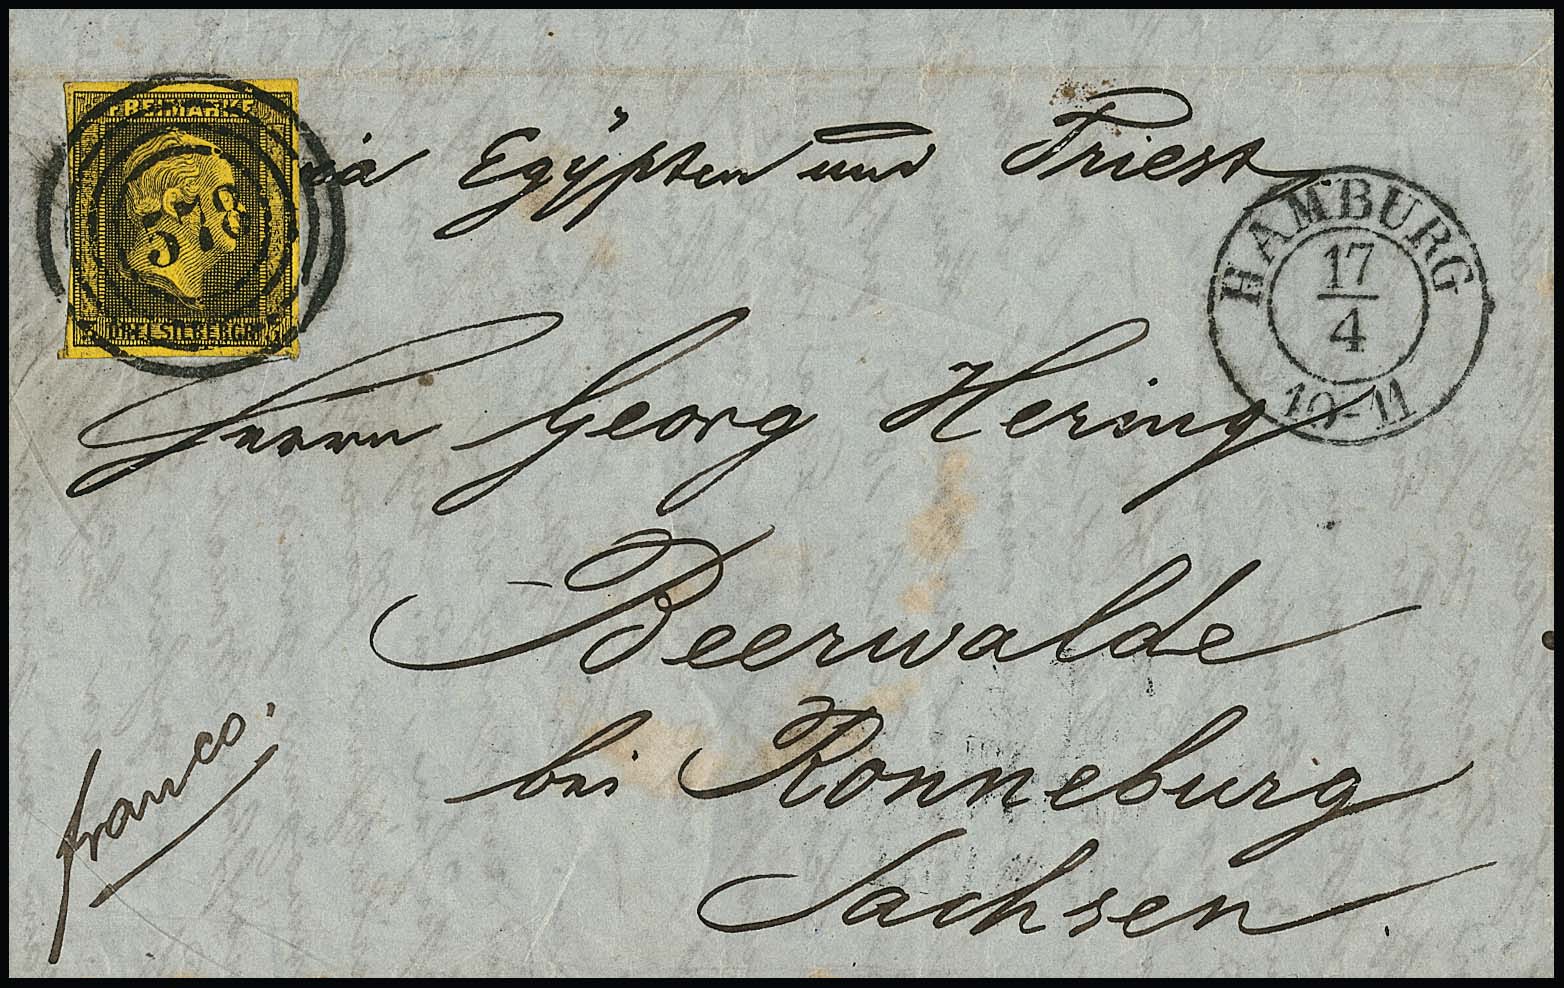 FREIMARKE
578
3 DREI SILBERGR. 3
via Egÿpten und Triest
HAMBURG
17
4
10-11
Herrn Georg Hering
Beerwalde
bei Ronneburg
Sachsen
franco.